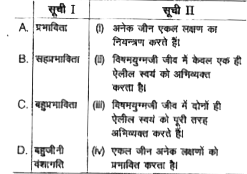 सूची I सूची II
A. प्रभाविता (i) अनेक जीन एकल लक्षण का
नियन्त्रण करते हैं।
B. सहप्रभाविता (ii) विषमयुग्मजी जीव में केवल एक ही
ऐलील स्वयं को अभिव्यक्त
करता है।
C. बहुप्रभाविता (iii) विषमयुग्मजी जीव में दोनों ही
ऐलील स्वयं को पूरी तरह
अभिव्यक्त करते हैं।
D. बहुजीनी (iv) एकल जीन अनेक लक्षणों को
वंशागति प्रभावित करता है।